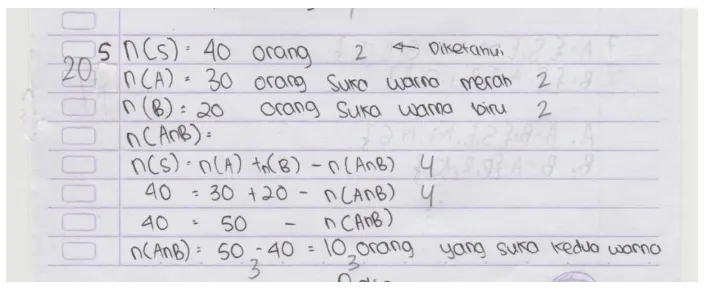 5 n(S) = 40 orang 2 ← Diketahui
20
n(A) = 30 orang suka warna merah 2
n(B) = 20 orang suka warna biru 2
n(A∩B) =
n(S) = n(A) + n(B) - n(A∩B) 4
40 = 30 + 20 - n(A∩B) 4
40 = 50 - n(A∩B)
n(A∩B) = 50 - 40 = 10 orang yang suka kedua warna
3 3